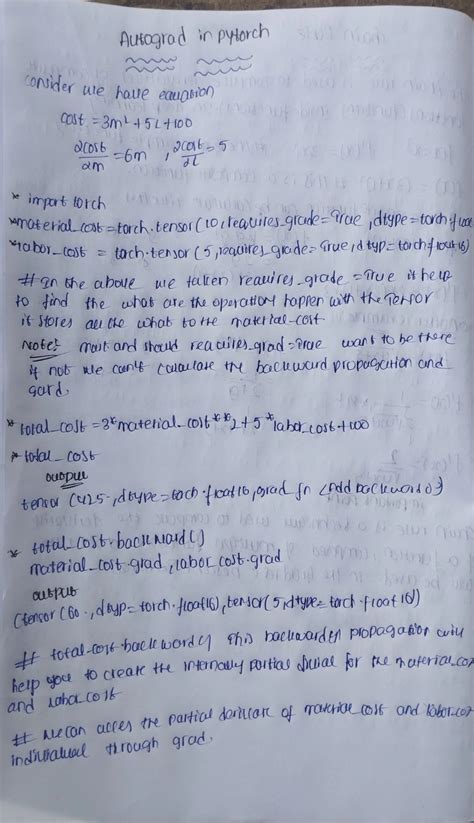 Autograd in pytorch
consider we have equption
cost = 3m² + 5L + 100
∂cost/∂m = 6m , ∂cost/∂L = 5
* import torch
*material_cost = torch.tensor(10, requires_grade=True, dtype=torch.float
*labor_cost = torch.tensor (5, requires_grade=True, dtyp=torch.float16)
# In the above we taken requires_grade = True it help
to find the what are the operation happen with the Tensor
it stores all the what to the material_cost
Note: must and should requires_grad=True want to be there
if not we can't calculate the backward propagation and
gard.
* total_cost = 3*material_cost**2 + 5*labor_cost + 100
* total_cost
output
tensor (425., dtype=torch.float16, grad_fn <Addbackward0>)
* total_cost.backward()
material_cost.grad, labor_cost.grad
output
(tensor (60., dtyp=torch.float16), tensor(5, dtype=torch.float16))
# total-cost.backword() This backwarden propagation will
help you to create the internally partial for the material_co
and labor_cost
# we can acces the partial of material_cost and labor_cos
individual through grad.